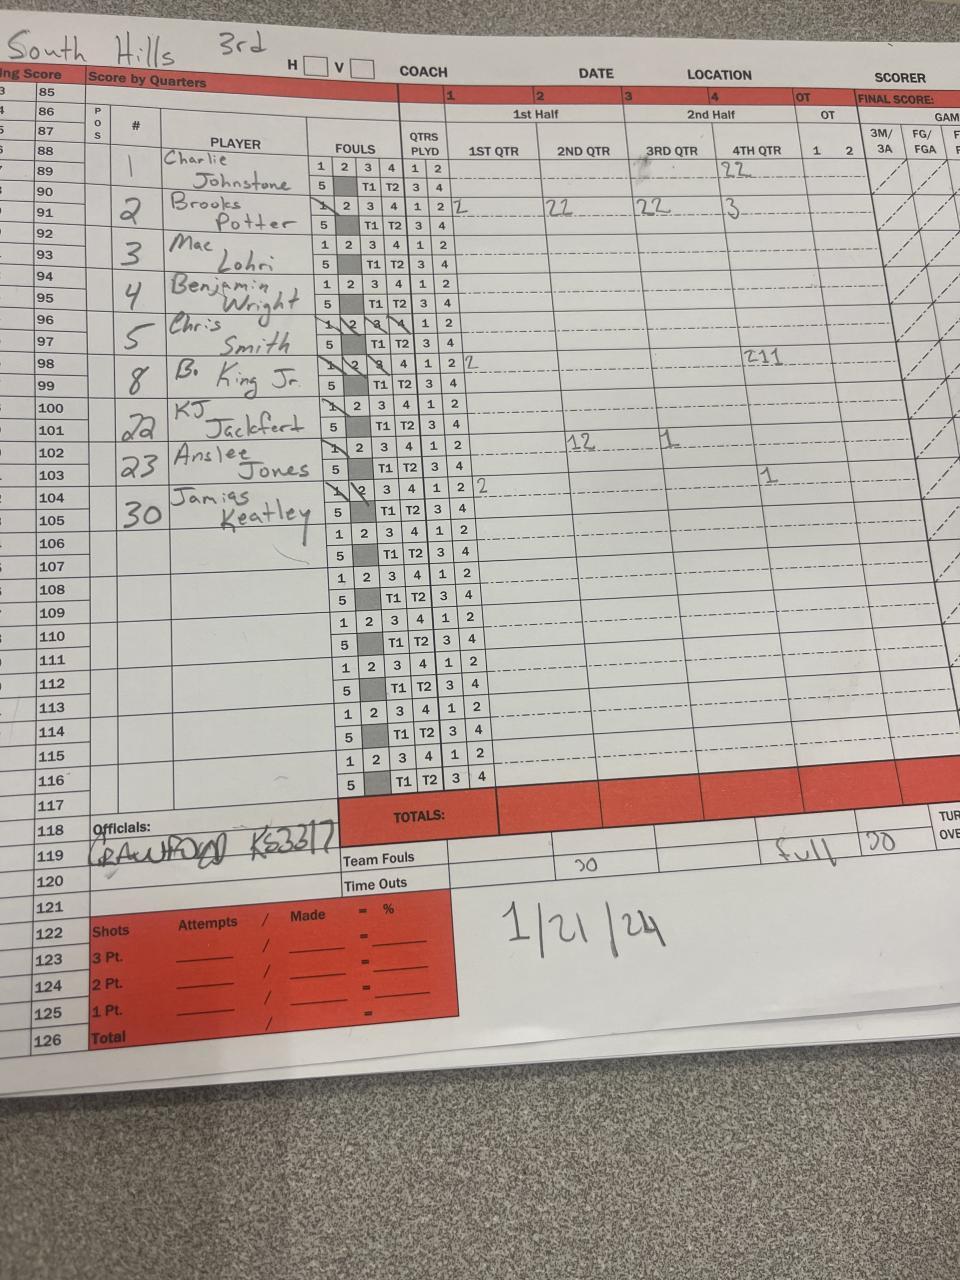 South Hills 3rd
H V COACH DATE LOCATION SCORER
ing Score Score by Quarters 1 2 3 4 OT FINAL SCORE:
1st Half 2nd Half OT GAM
POS # PLAYER FOULS QTRS PLYD 1ST QTR 2ND QTR 3RD QTR 4TH QTR 1 2 3M/3A FG/FGA
1 Charlie Johnstone 1 2 3 4 1 2 22
5 T1 T2 3 4
2 Brooks Potter 1 2 3 4 1 2 2 22 22 3
5 T1 T2 3 4
3 Mac Lohri 1 2 3 4 1 2
5 T1 T2 3 4
4 Benjamin Wright 1 2 3 4 1 2
5 T1 T2 3 4
5 Chris Smith 1 2 3 4 1 2
5 T1 T2 3 4
8 B. King Jr. 1 2 3 4 1 2 2 211
5 T1 T2 3 4
22 KJ Jackfert 1 2 3 4 1 2
5 T1 T2 3 4
23 Anslee Jones 1 2 3 4 1 2 12 1
5 T1 T2 3 4
30 Jamias Keatley 1 2 3 4 1 2 2 1
5 T1 T2 3 4
1 2 3 4 1 2
5 T1 T2 3 4
1 2 3 4 1 2
5 T1 T2 3 4
1 2 3 4 1 2
5 T1 T2 3 4
1 2 3 4 1 2
5 T1 T2 3 4
1 2 3 4 1 2
5 T1 T2 3 4
1 2 3 4 1 2
5 T1 T2 3 4
85
86
87
88
89
90
91
92
93
94
95
96
97
98
99
100
101
102
103
104
105
106
107
108
109
110
111
112
113
114
115
116
117
118
119
120
121
122
123
124
125
126
TOTALS:
Officials:
CRAWFORD
Team Fouls
Time Outs 30 full 30
TUR
OVE
1/21/24
Shots Attempts / Made = %
3 Pt. / =
2 Pt. / =
1 Pt. / =
Total / =